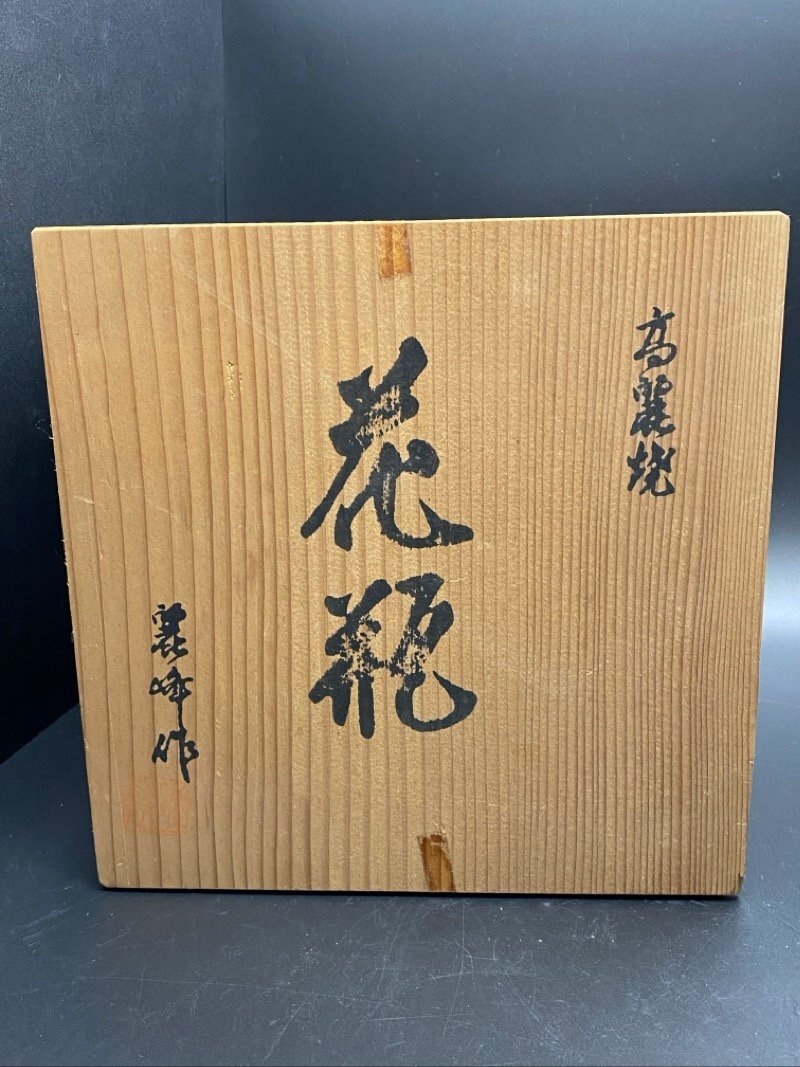 高麗焼
花瓶
麗峰作